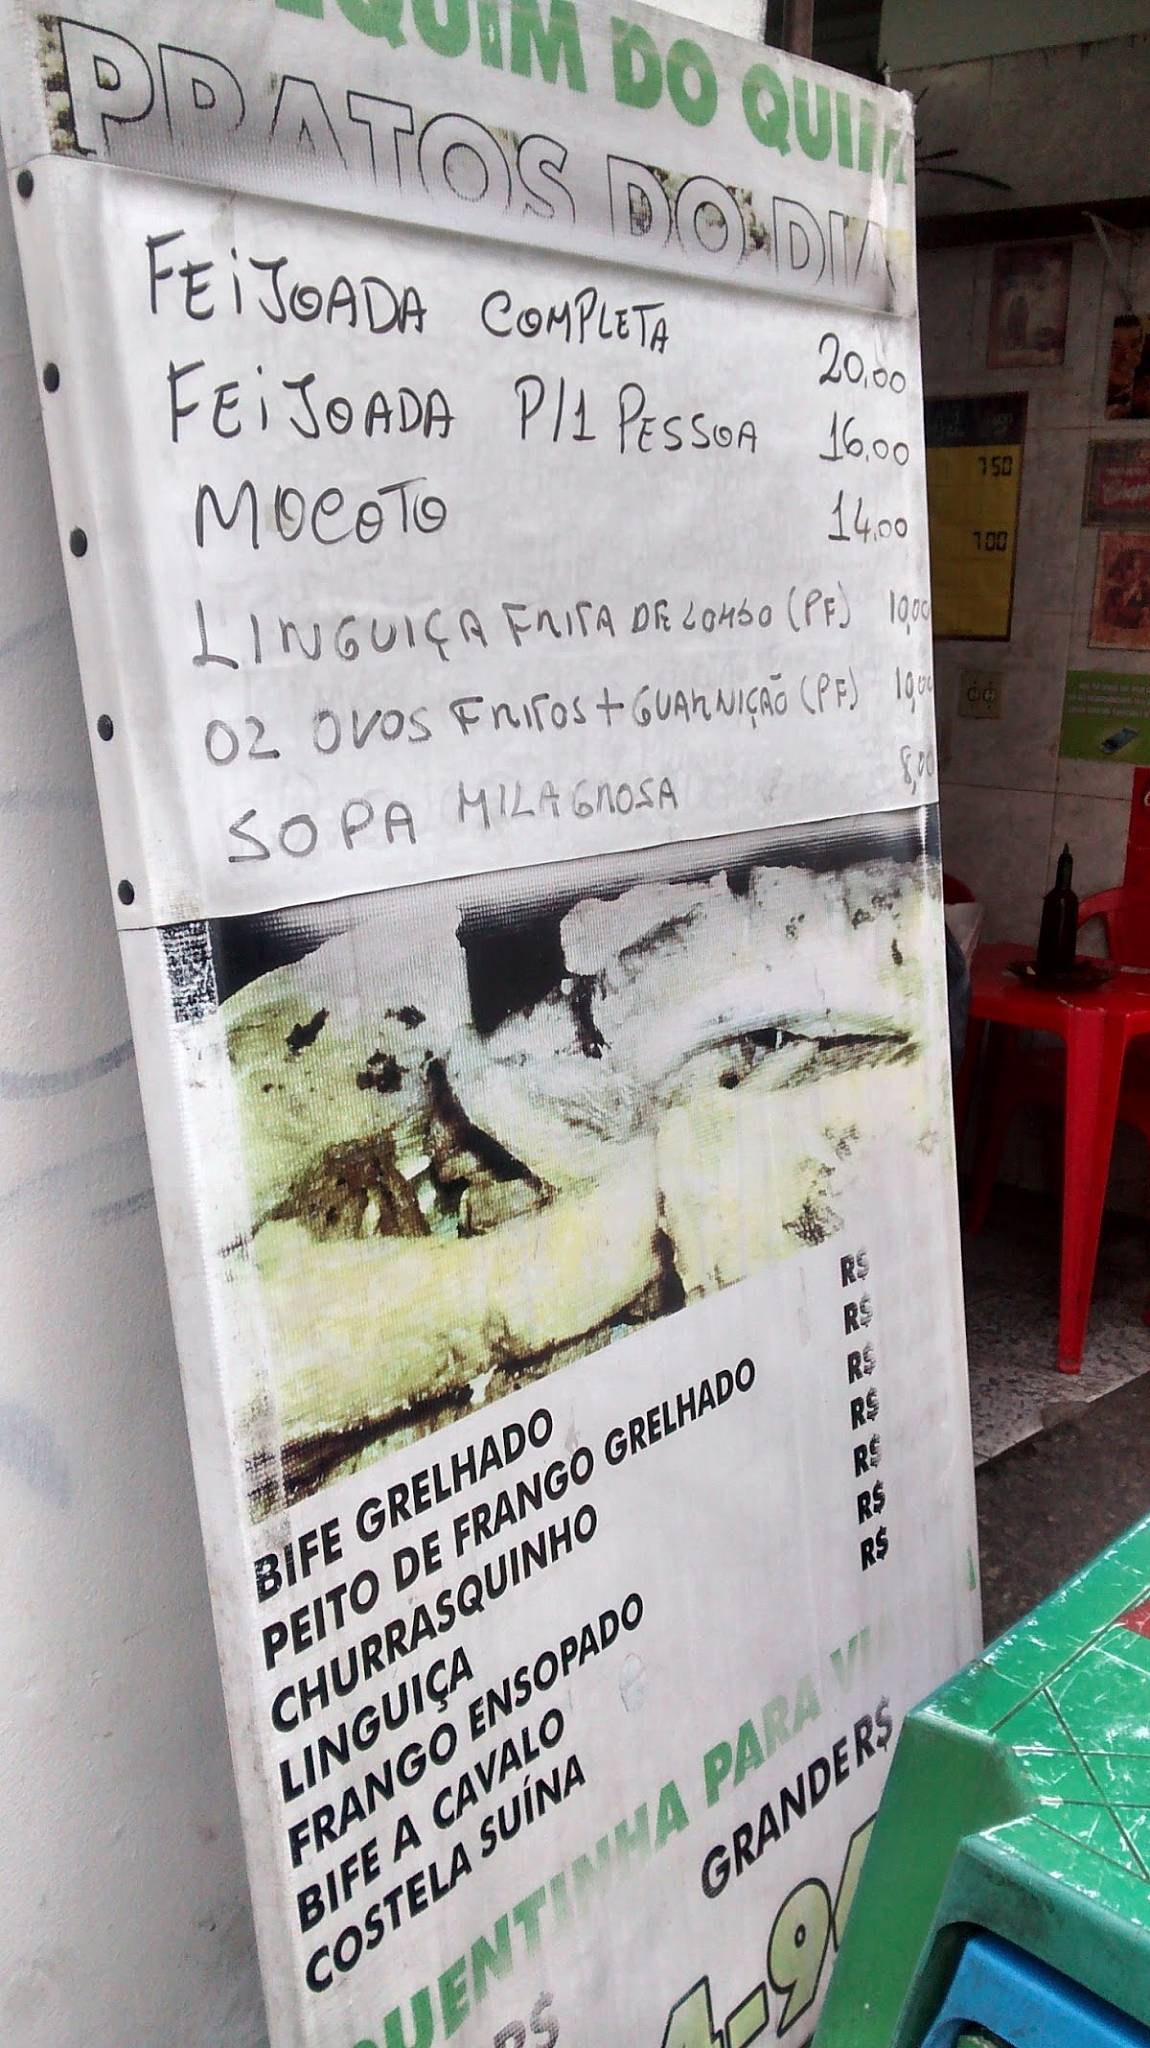 DO
PRATOS DO DIA
FEIJOADA COMPLETA 20,00
FEIJOADA P/1 PESSOA 16,00
MOCOTO 14,00
LINGUIÇA FRITA DE LOMBO (PF) 10,00
02 OVOS FRITOS + GUARNIÇÃO (PF) 10,00
SOPA MILAGROSA 8,00
750
700
BIFE GRELHADO R$
PEITO DE FRANGO GRELHADO R$
CHURRASQUINHO R$
LINGUIÇA R$
FRANGO ENSOPADO R$
BIFE A CAVALO R$
COSTELA SUÍNA R$
QUENTINHA PARA
GRANDE R$
R$